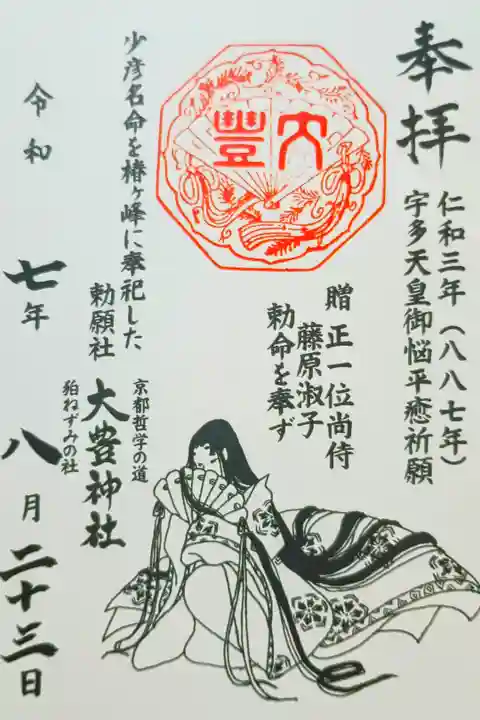 奉拝
仁和三年（八八七年）
宇多天皇御悩平癒祈願
大豊
贈 正一位尚侍
藤原淑子
勅命を奉ず
少彦名命を椿ヶ峰に奉祀した
勅願社
京都哲学の道
大豊神社
狛ねずみの社
令和七年八月二十三日